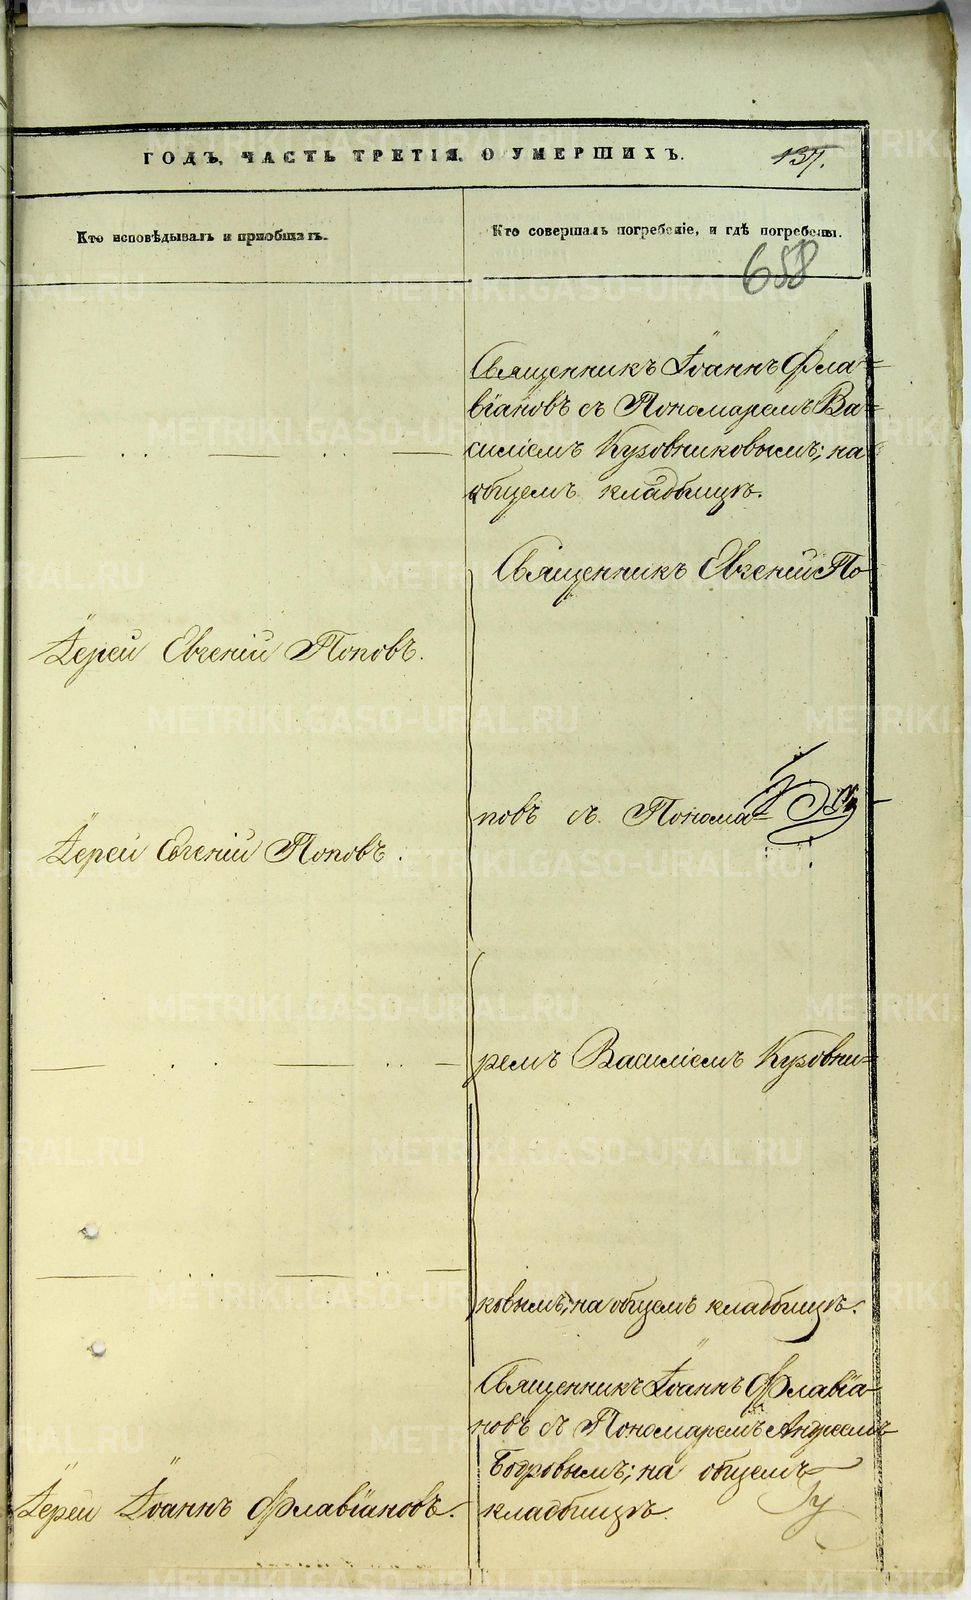 ГОДЪ, ЧАСТЬ ТРЕТІЯ. О УМЕРШИХЪ.
137.
Кто исповѣдывалъ и приобщалъ.
Кто совершалъ погребеніе, и гдѣ погребены.
658
Священникъ Іоаннъ Фла-
віановъ съ Пономаремъ Ва-
силіемъ Кузовниковымъ; на
общемъ кладбищѣ.
Священникъ Евгеній По-
Іерей Евгеній Поповъ.
повъ съ Понома-
Іерей Евгеній Поповъ.
ремъ Василіемъ Кузовни-
ковымъ; на общемъ кладбищѣ.
Священникъ Іоаннъ Флавіа-
новъ съ Пономаремъ Андреемъ
Бодровымъ; на общемъ
кладбищѣ.
Іерей Іоаннъ Флавіановъ.
METRIKI.GASO-URAL.RU